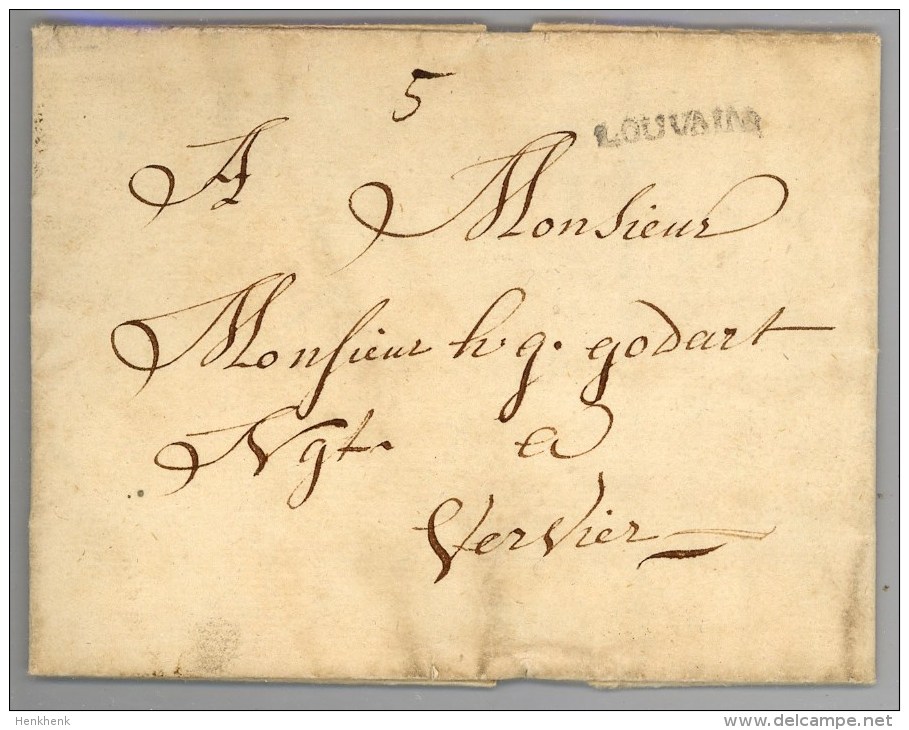 5
LOUVAIN
A
Monsieur
Monsieur h. g. godart
Ngt. a
VerVier
Henkhenk
www.delcampe.net